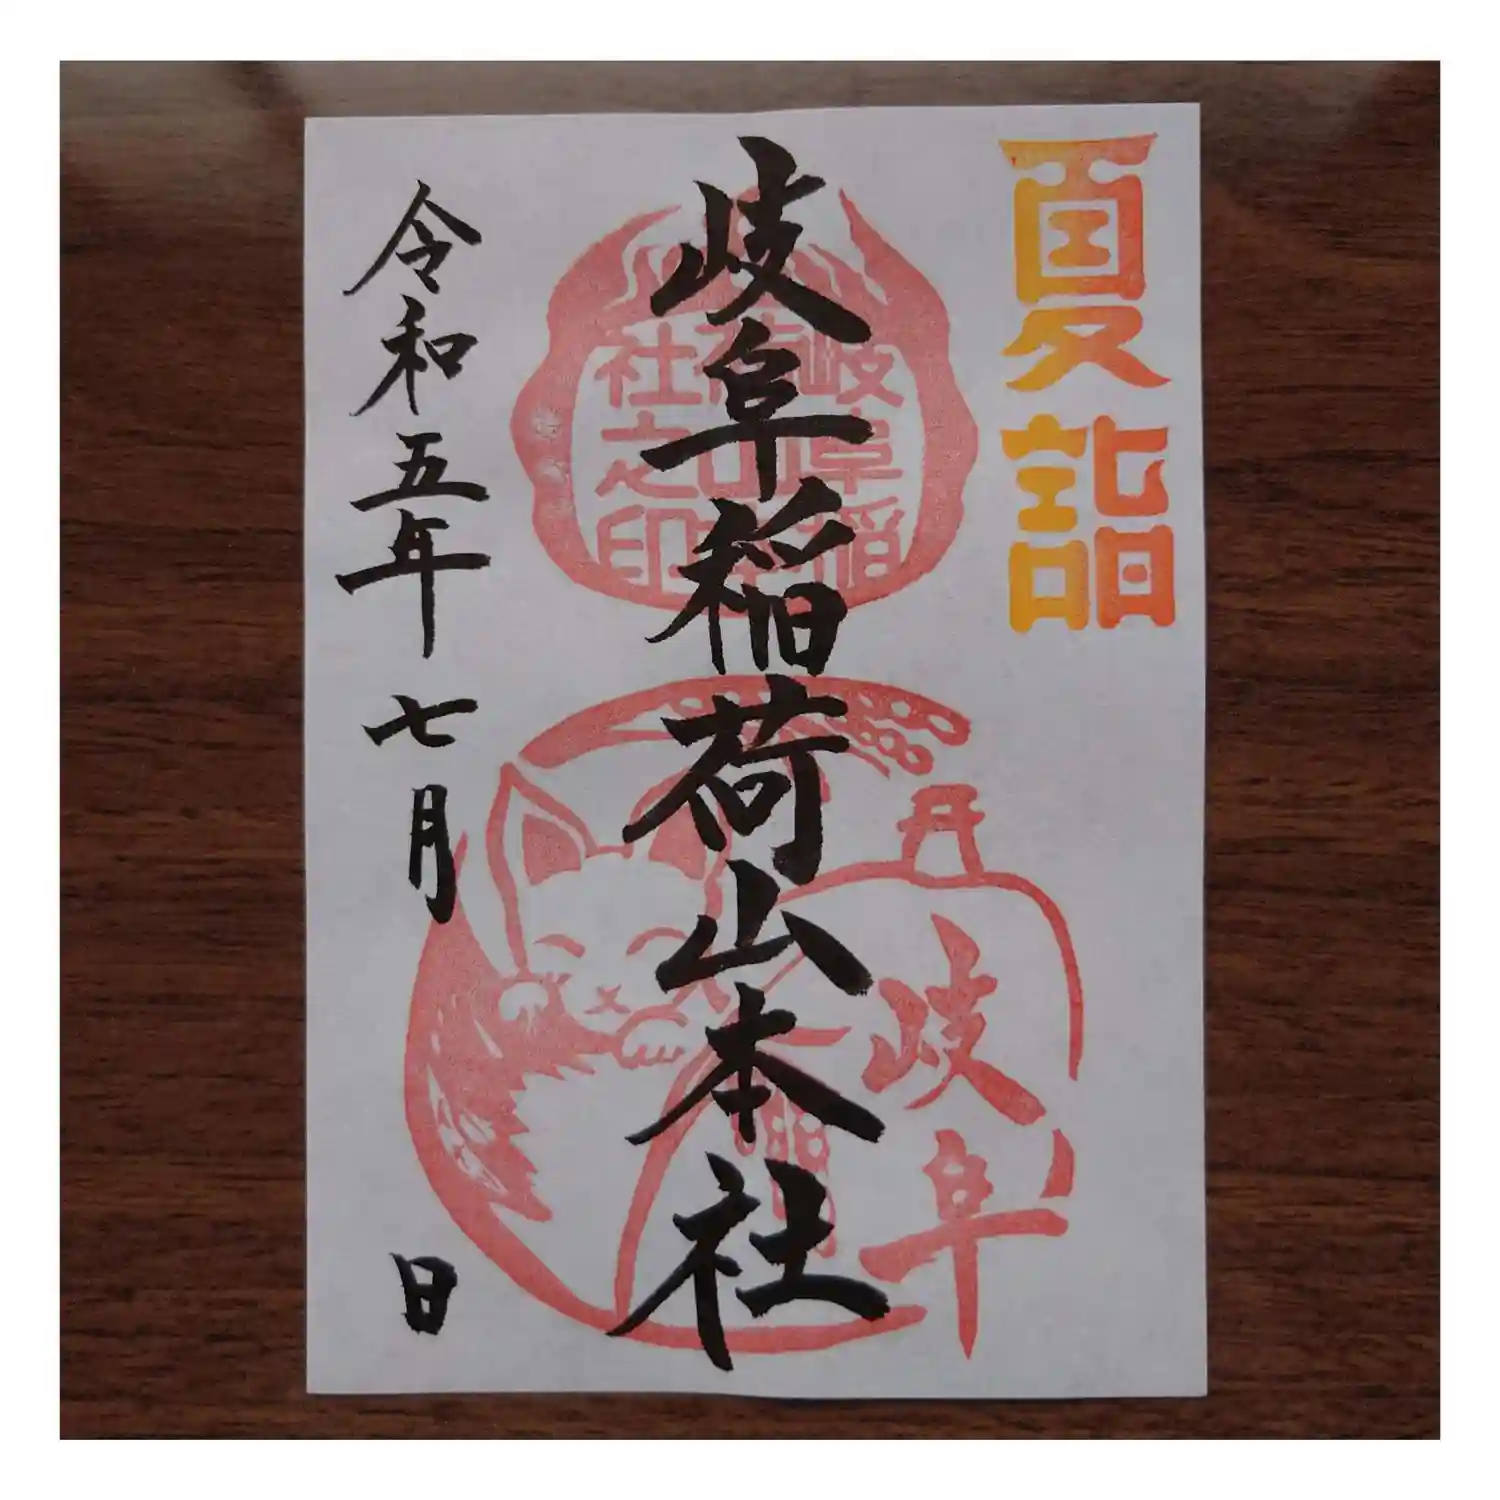 夏詣
岐阜稲荷山本社
岐阜稲
荷山本
社之印
岐阜
令和五年七月 日